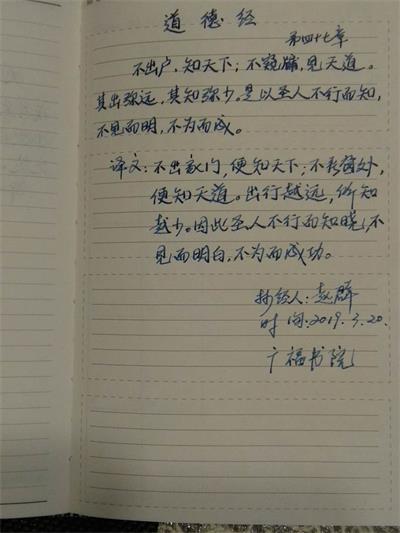 道德经
第四十七章
不出户,知天下;不窥牖,见天道。
其出弥远,其知弥少。是以圣人不行而知,
不见而明,不为而成。
译文:不出家门,便知天下;不看窗外,
便知天道。出行越远,所知
越少。因此圣人不行而知晓,不
见而明白,不为而成功。
抄经人:赵群
时间:2019.3.20.
广福书院